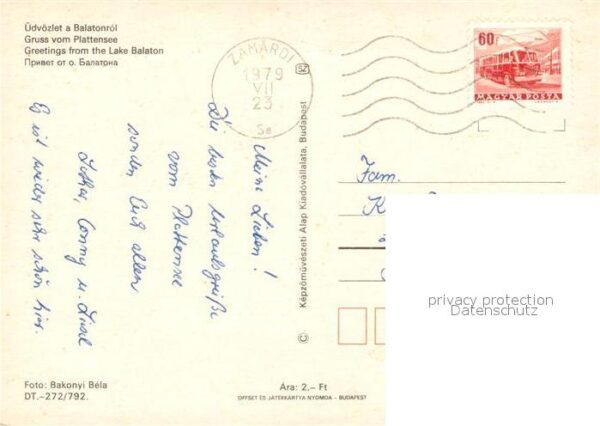 Üdvözlet a Balatonról
Gruss vom Plattensee
Greetings from the Lake Balaton
Привет от о. Балатона
ZAMÁRDI
1979
VII
23
60f
MAGYAR POSTA
Meine Lieben!
Die besten Urlaubsgrüße
vom Plattensee
senden Euch allen
Lothar, Conny u. Liesel
Es ist wieder sehr schön hier.
© Képzőművészeti Alap Kiadóvállalata, Budapest
Fam.
K
privacy protection
Datenschutz
Foto: Bakonyi Béla
DT.–272/792.
Ára: 2,– Ft
OFFSET ÉS JÁTÉKKÁRTYA NYOMDA – BUDAPEST